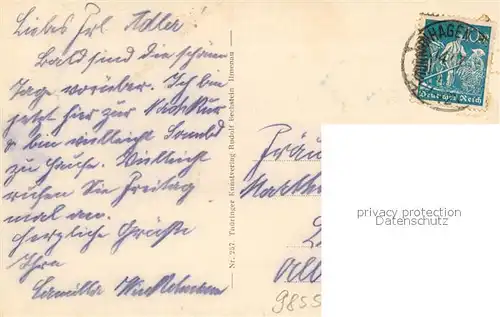 Liebes Frl Adler
Bald sind die schönen
Tage vorüber. Ich bin
jetzt hier zur Nachkur
& bin vielleicht Sonnabd
zu Hause. Vielleicht
rufen Sie Freitag
mal an.
Herzliche Grüße
Ihre
Camilla Winkelmann
Nr. 257. Thüringer Kunstverlag Rudolf Bechstein Ilmenau
HAGEN
Deutsches Reich
Fräu
Marth
privacy protection
Datenschutz
9855